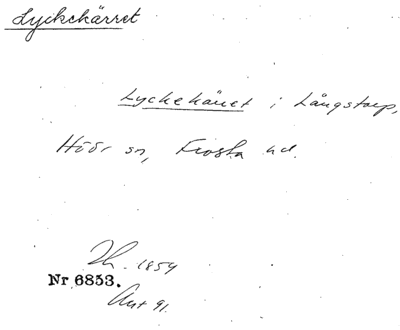 Lyckekärret
Lyckekäret i Långstorp,
Höör sn, Frosta hd.
Th. 1854
Nr 6853.
Ant 91.